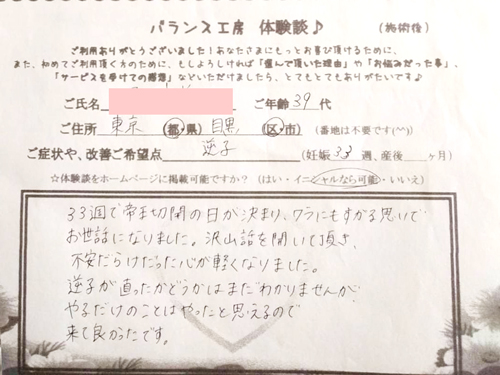 バランス工房 体験談♪ (施術後)
ご利用ありがとうございました!あなたさまにもっとお喜び頂けるために、
また、初めてご利用頂く方のために、もしよろしければ「選んで頂いた理由」や「お悩みだった事」、
「サービスを受けての感想」などいただけましたら、とてもとてもありがたいです♪
ご氏名 ご年齢 39 代
ご住所 東京 (都・県) 目黒 (区・市) (番地は不要です(^^))
ご症状や、改善ご希望点 逆子 (妊娠 33 週、産後 ヶ月)
☆体験談をホームページに掲載可能ですか? (はい・イニシャルなら可能・いいえ)
33週で帝王切開の日が決まり、ワラにもすがる思いで
お世話になりました。沢山話を聞いて頂き、
不安だらけだった心が軽くなりました。
逆子が直ったかどうかはまだわかりませんが、
やるだけのことはやったと思えるので
来て良かったです。